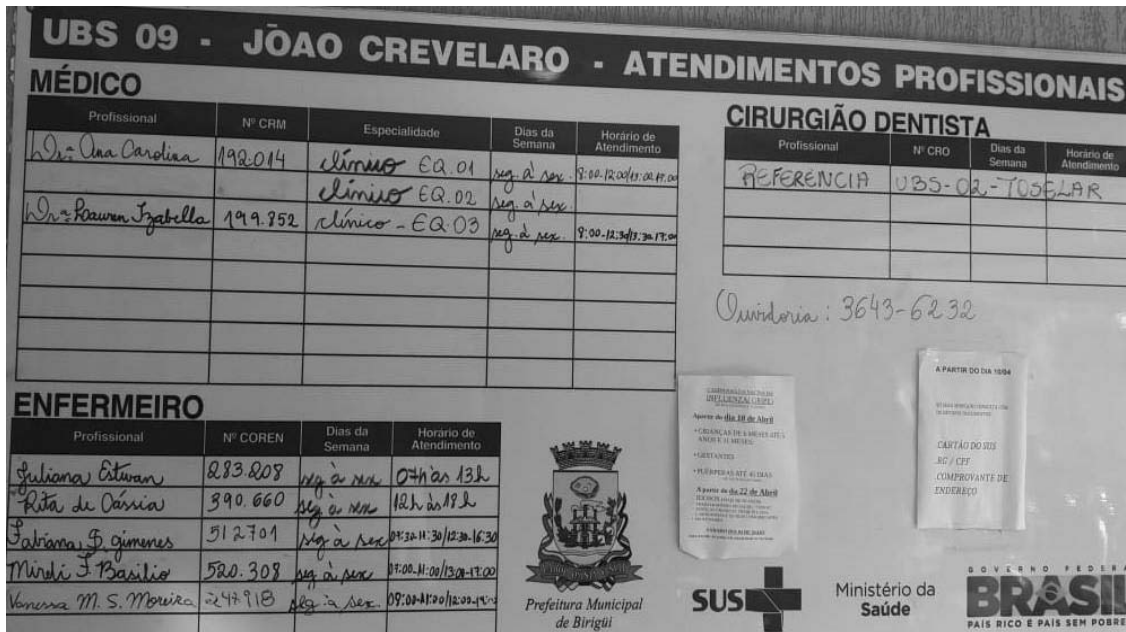 UBS 09 - JOAO CREVELARO - ATENDIMENTOS PROFISSIONAIS
MÉDICO
Profissional Nº CRM Especialidade Dias da Semana Horário de Atendimento
Drª Ana Carolina 192.014 clínico EQ.01 seg. à sex. 8:00-12:00/13:00-17:00
clínico EQ.02 seg. à sex.
Drª Lauren Izabella 199.852 clínico - EQ.03 seg. à sex. 8:00-12:30/13:30-17:00
CIRURGIÃO DENTISTA
Profissional Nº CRO Dias da Semana Horário de Atendimento
REFERÊNCIA UBS-02-TOSELAR
Ouvidoria: 3643-6232
ENFERMEIRO
Profissional Nº COREN Dias da Semana Horário de Atendimento
Juliana Estevan 283.208 seg à sex 07h às 13h
Rita de Cássia 390.660 seg à sex 12h às 18h
Fabiana F. gimenes 512701 seg à sex 07:30-11:30/12:30-16:30
Mirdi F. Basilio 520.308 seg à sex 07:00-11:00/13:00-17:00
Vanessa M. S. Moreira 247918 seg à sex.
INFLUENZA
Apartir do dia 10 de Abril
• CRIANÇAS DE 6 MESES ATÉ 5
ANOS E 11 MESES;
• GESTANTES
• PUÉRPERAS ATÉ 45 DIAS
A partir do dia 22 de Abril
A PARTIR DO DIA 10/04
CARTÃO DO SUS
RG / CPF
COMPROVANTE DE
ENDEREÇO
Prefeitura Municipal
de Birigüi
SUS
Ministério da
Saúde
GOVERNO FEDERA
BRASIL
PAÍS RICO É PAÍS SEM POBRE